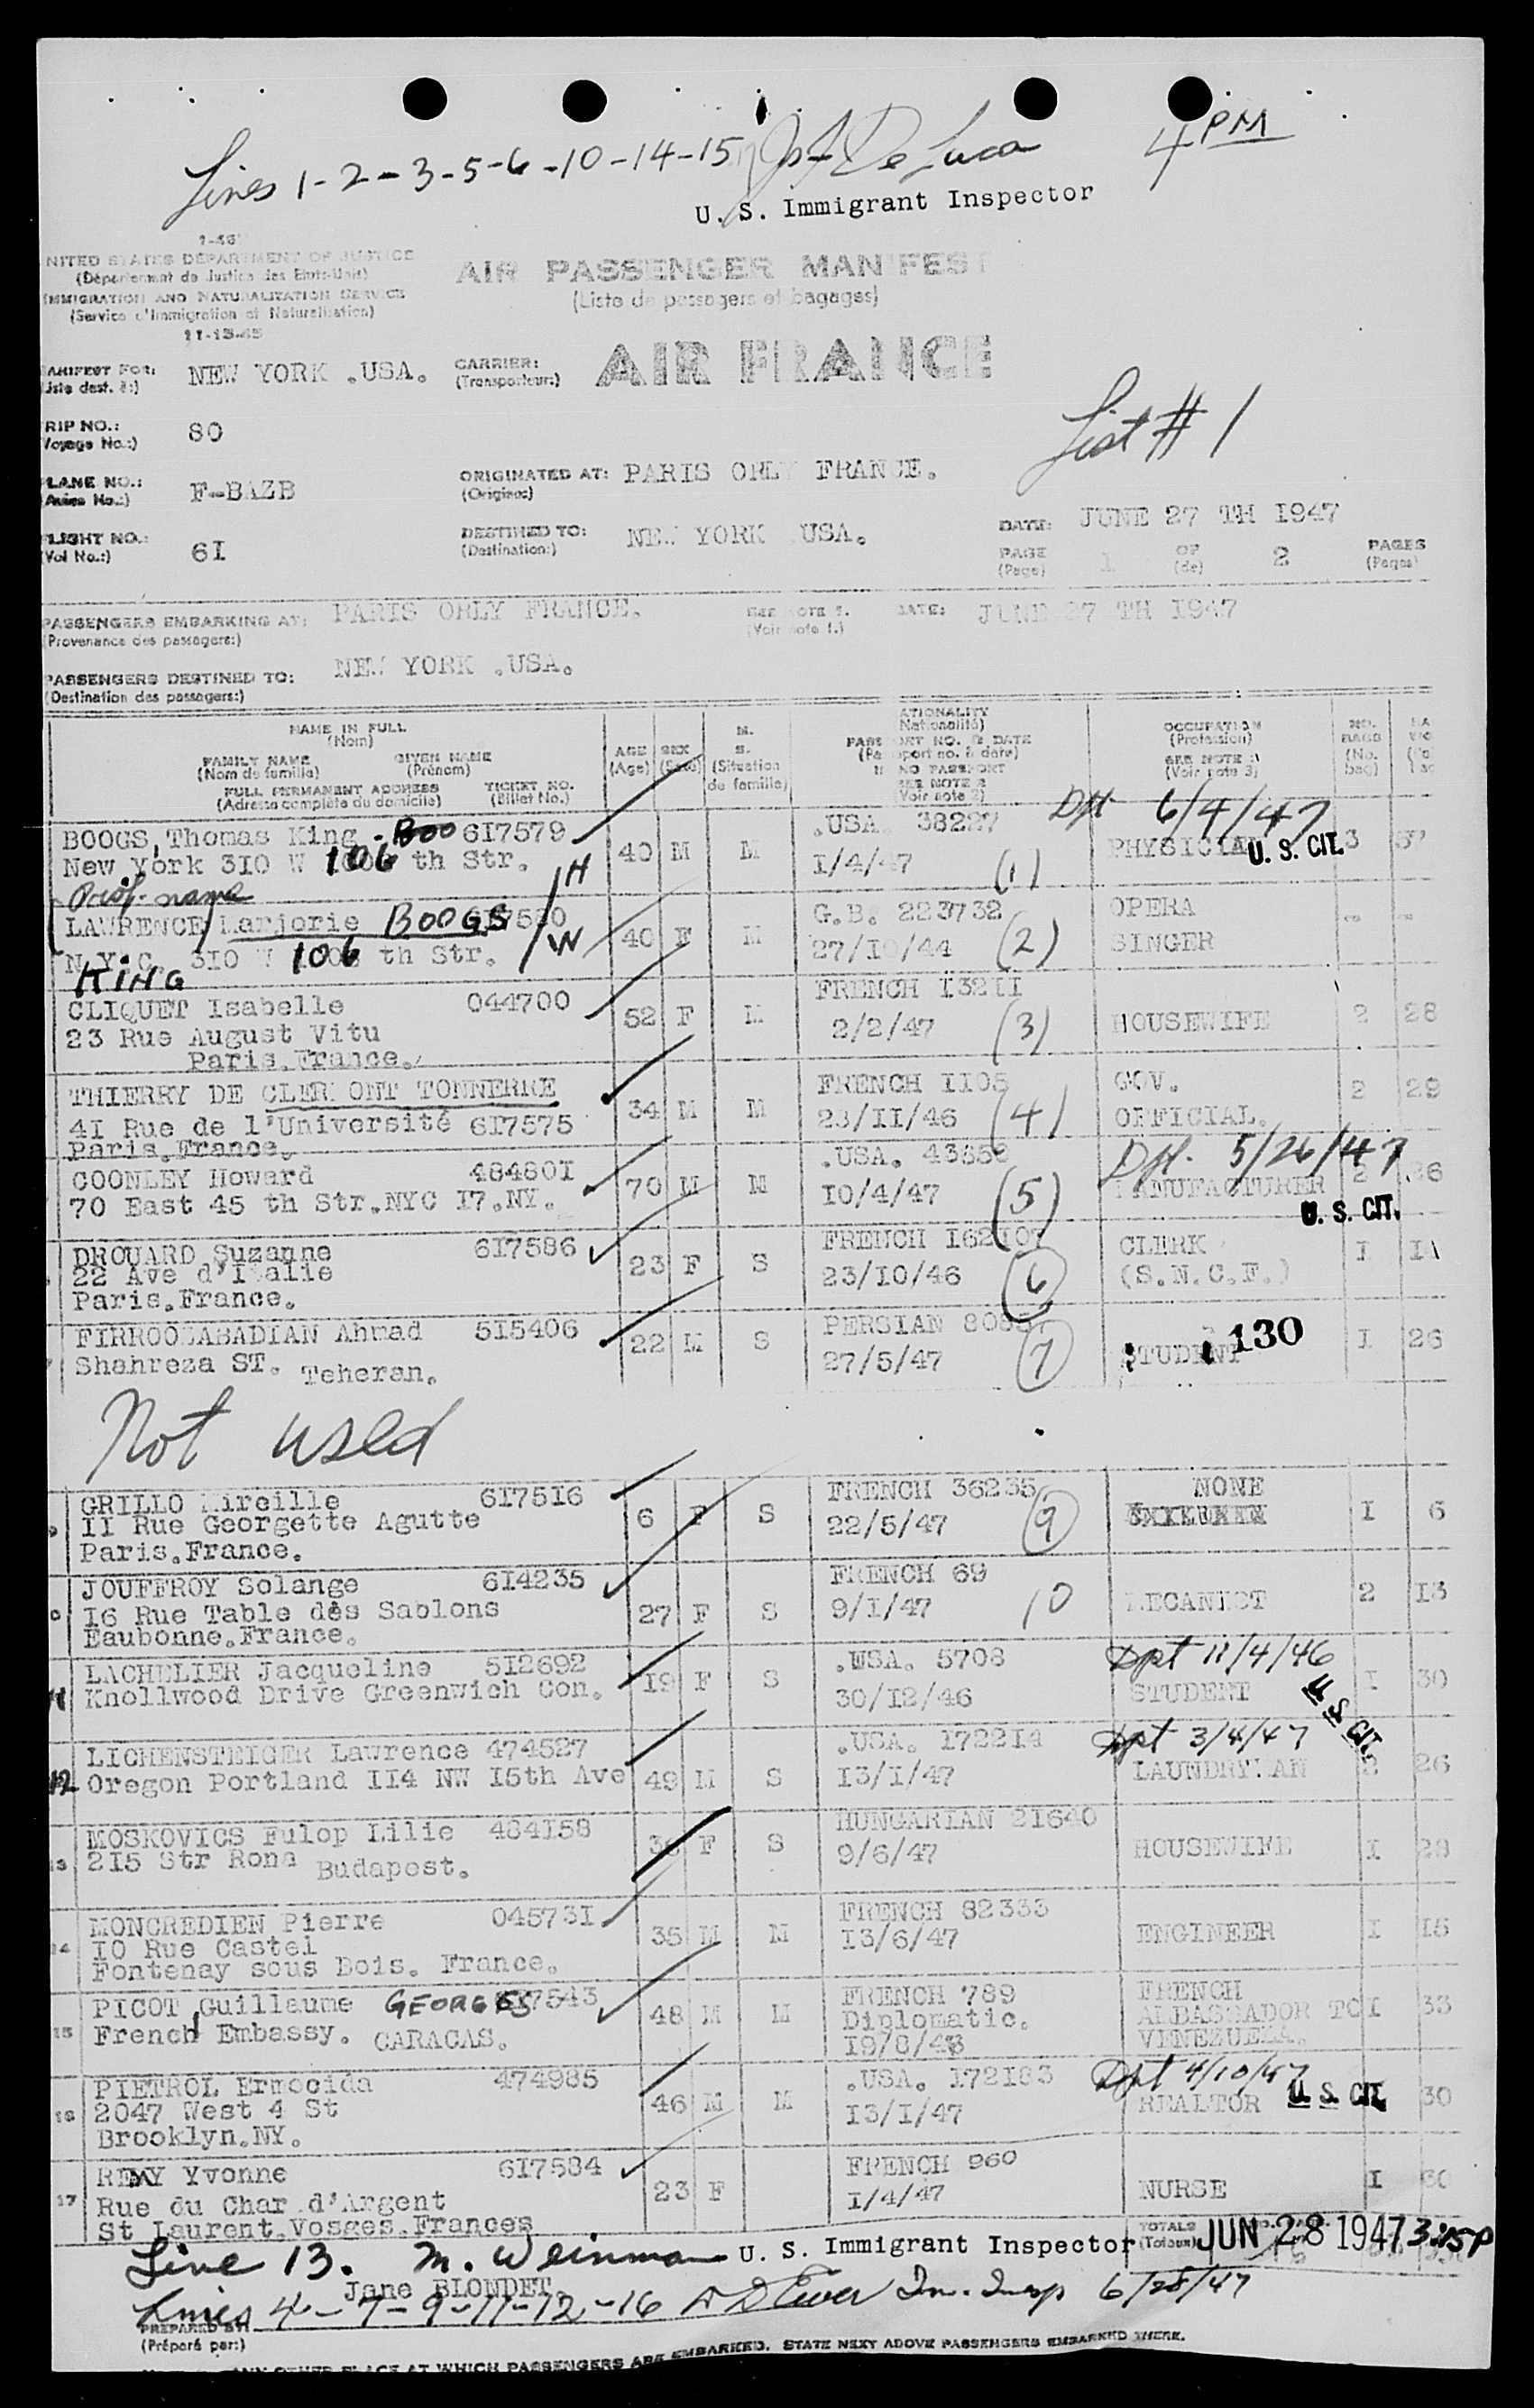 Lines 1-2-3-5-6-10-14-15 Jos A De Luca 4 PM
U. S. Immigrant Inspector
NITED STATES DEPARTMENT OF JUSTICE
(Département de Justice des Etats-Unis)
IMMIGRATION AND NATURALIZATION SERVICE
(Service d'Immigration et Naturalisation)
11-15-45
AIR PASSENGER MANIFEST
(Liste de passagers et bagages)
CARRIER: AIR FRANCE
(Transporteur:)
ANIFEST FOR: NEW YORK .USA.
(Liste dest. à:)
List # 1
RIP NO.: 80
(Voyage No.:)
LANE NO.: F-BAZB
(Avion No.:)
ORIGINATED AT: PARIS ORLY FRANCE.
(Origine:)
LIGHT NO.: 61
(Vol No.:)
DESTINED TO: NEW YORK USA.
(Destination:)
DATE: JUNE 27 TH I947
PAGE 1 OF 2 PAGES
(Page) (de) (Pages)
PASSENGERS EMBARKING AT: PARIS ORLY FRANCE. SEE NOTE 1. DATE: JUNE 27 TH I947
(Provenance des passagers:) (Voir note 1.)
PASSENGERS DESTINED TO: NEW YORK .USA.
(Destination des passagers:)
NAME IN FULL
(Nom)
FAMILY NAME GIVEN NAME
(Nom de famille) (Prénom)
FULL PERMANENT ADDRESS TICKET NO.
(Adresse complète du domicile) (Billet No.)
AGE SEX M. S.
(Age) (Sexe) (Situation de famille)
NATIONALITY
(Nationalité)
PASSPORT NO. & DATE
(Passport no. & date)
IF NO PASSPORT
SEE NOTE 2
(Voir note 2)
OCCUPATION
(Profession)
SEE NOTE 3
(Voir note 3)
NO. BAGS
(No. bag)
BOOGS, Thomas King - Boo 6I7579 40 M M .USA. I/4/47 (1) Dpt 6/4/47 PHYSICIAN U. S. CIT. 3
New York 3IO W 106 th Str. H
Prof. name
LAWRENCE Marjorie BOOGS 40 F M G.B. 223732 27/IO/44 (2) OPERA SINGER
N.Y.C. 3IO W 106 th Str. W
KING
CLIQUET Isabelle 044700 52 F M FRENCH I32II 2/2/47 (3) HOUSEWIFE 2 28
23 Rue August Vitu
Paris.France.
THIERRY DE CLERMONT TONNERRE 34 M M FRENCH II05 23/II/46 (4) GOV. OFFICIAL. 2 29
4I Rue de l'Université 6I7575
Paris.France.
COONLEY Howard 48480I 70 M M .USA. IO/4/47 (5) Dpt. 5/26/47 MANUFACTURER 2 U. S. CIT.
70 East 45 th Str.NYC I7.NY.
DROUARD Suzanne 6I7586 23 F S FRENCH 23/IO/46 (6) CLERK (S.N.C.F.) I
22 Ave d'Italie
Paris.France.
FIRROOZABADIAN Ahmad 5I5406 22 M S PERSIAN 27/5/47 (7) STUDENT 130 I 26
Shahreza ST. Teheran.
Not used
GRILLO Mireille 6I75I6 6 F S FRENCH 36235 22/5/47 (9) NONE I 6
II Rue Georgette Agutte
Paris.France.
JOUFFROY Solange 6I4235 27 F S FRENCH 69 9/I/47 10 MECANICT 2 I3
I6 Rue Table des Sablons
Eaubonne.France.
11 LACHELIER Jacqueline 5I2692 I9 F S .USA. 5708 30/I2/46 Dpt 11/4/46 STUDENT U S CIT. I 30
Knollwood Drive Greenwich Con.
12 LICHENSTEIGER Lawrence 474527 49 M S .USA. I722I4 I3/I/47 Dpt 3/4/47 LAUNDRYMAN 2 26
Oregon Portland II4 NW I5th Ave
13 MOSKOVICS Fulop Lilie 484I58 F S HUNGARIAN 2I640 9/6/47 HOUSEWIFE I 28
2I5 Str Rona Budapest.
14 MONCREDIEN Pierre 04573I 35 M M FRENCH 82333 I3/6/47 ENGINEER I I5
IO Rue Castel
Fontenay sous Bois. France.
15 PICOT, Guillaume GEORGES 48 M M FRENCH 789 Diplomatic. FRENCH AMBASSADOR TO VENEZUELA. I 33
French Embassy. CARACAS.
16 PIETROL Ermocida 474985 46 M M .USA. I72I83 I3/I/47 Dpt 4/10/47 REALTOR U. S. CIT. 30
2047 West 4 St
Brooklyn.NY.
17 REMY Yvonne 6I7584 23 F FRENCH 960 I/4/47 NURSE I
Rue du Char d'Argent
St Laurent.Vosges.Frances
Line 13. M. Weinman U. S. Immigrant Inspector TOTALS (Totaux) JUN 28 1947 3:15P
Jane BLONDET
Lines 4-7-9-11-12-16 Im. Insp 6/28/47
PREPARED BY:
(Préparé par:)
ANY OTHER PLACE AT WHICH PASSENGERS ARE EMBARKED. STATE NEXT ABOVE PASSENGERS EMBARKED THERE.